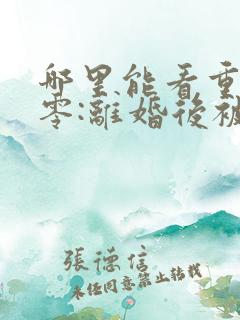 哪里能看重
零:離婚後被
張德信
未经同意禁止转载